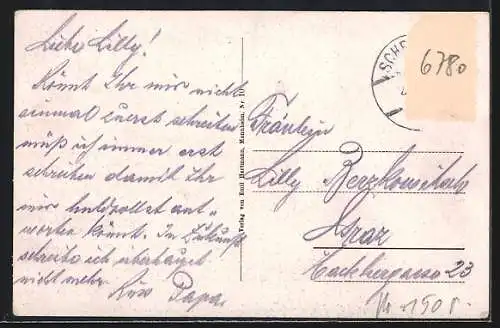 Liebe Lilly!
Könnt Ihr mir nicht
einmal zuerst schreiben
muß ich immer erst
schreiben damit Ihr
mir huldvollst ant„
worten könnt. In Zukunft
schreibe ich überhaupt
nicht mehr.
Papa.
Verlag von Emil Hartmann, Mannheim. Nr. 10
SCH
6780
Fräulein
Lilly
Graz
Hackhergasse 23